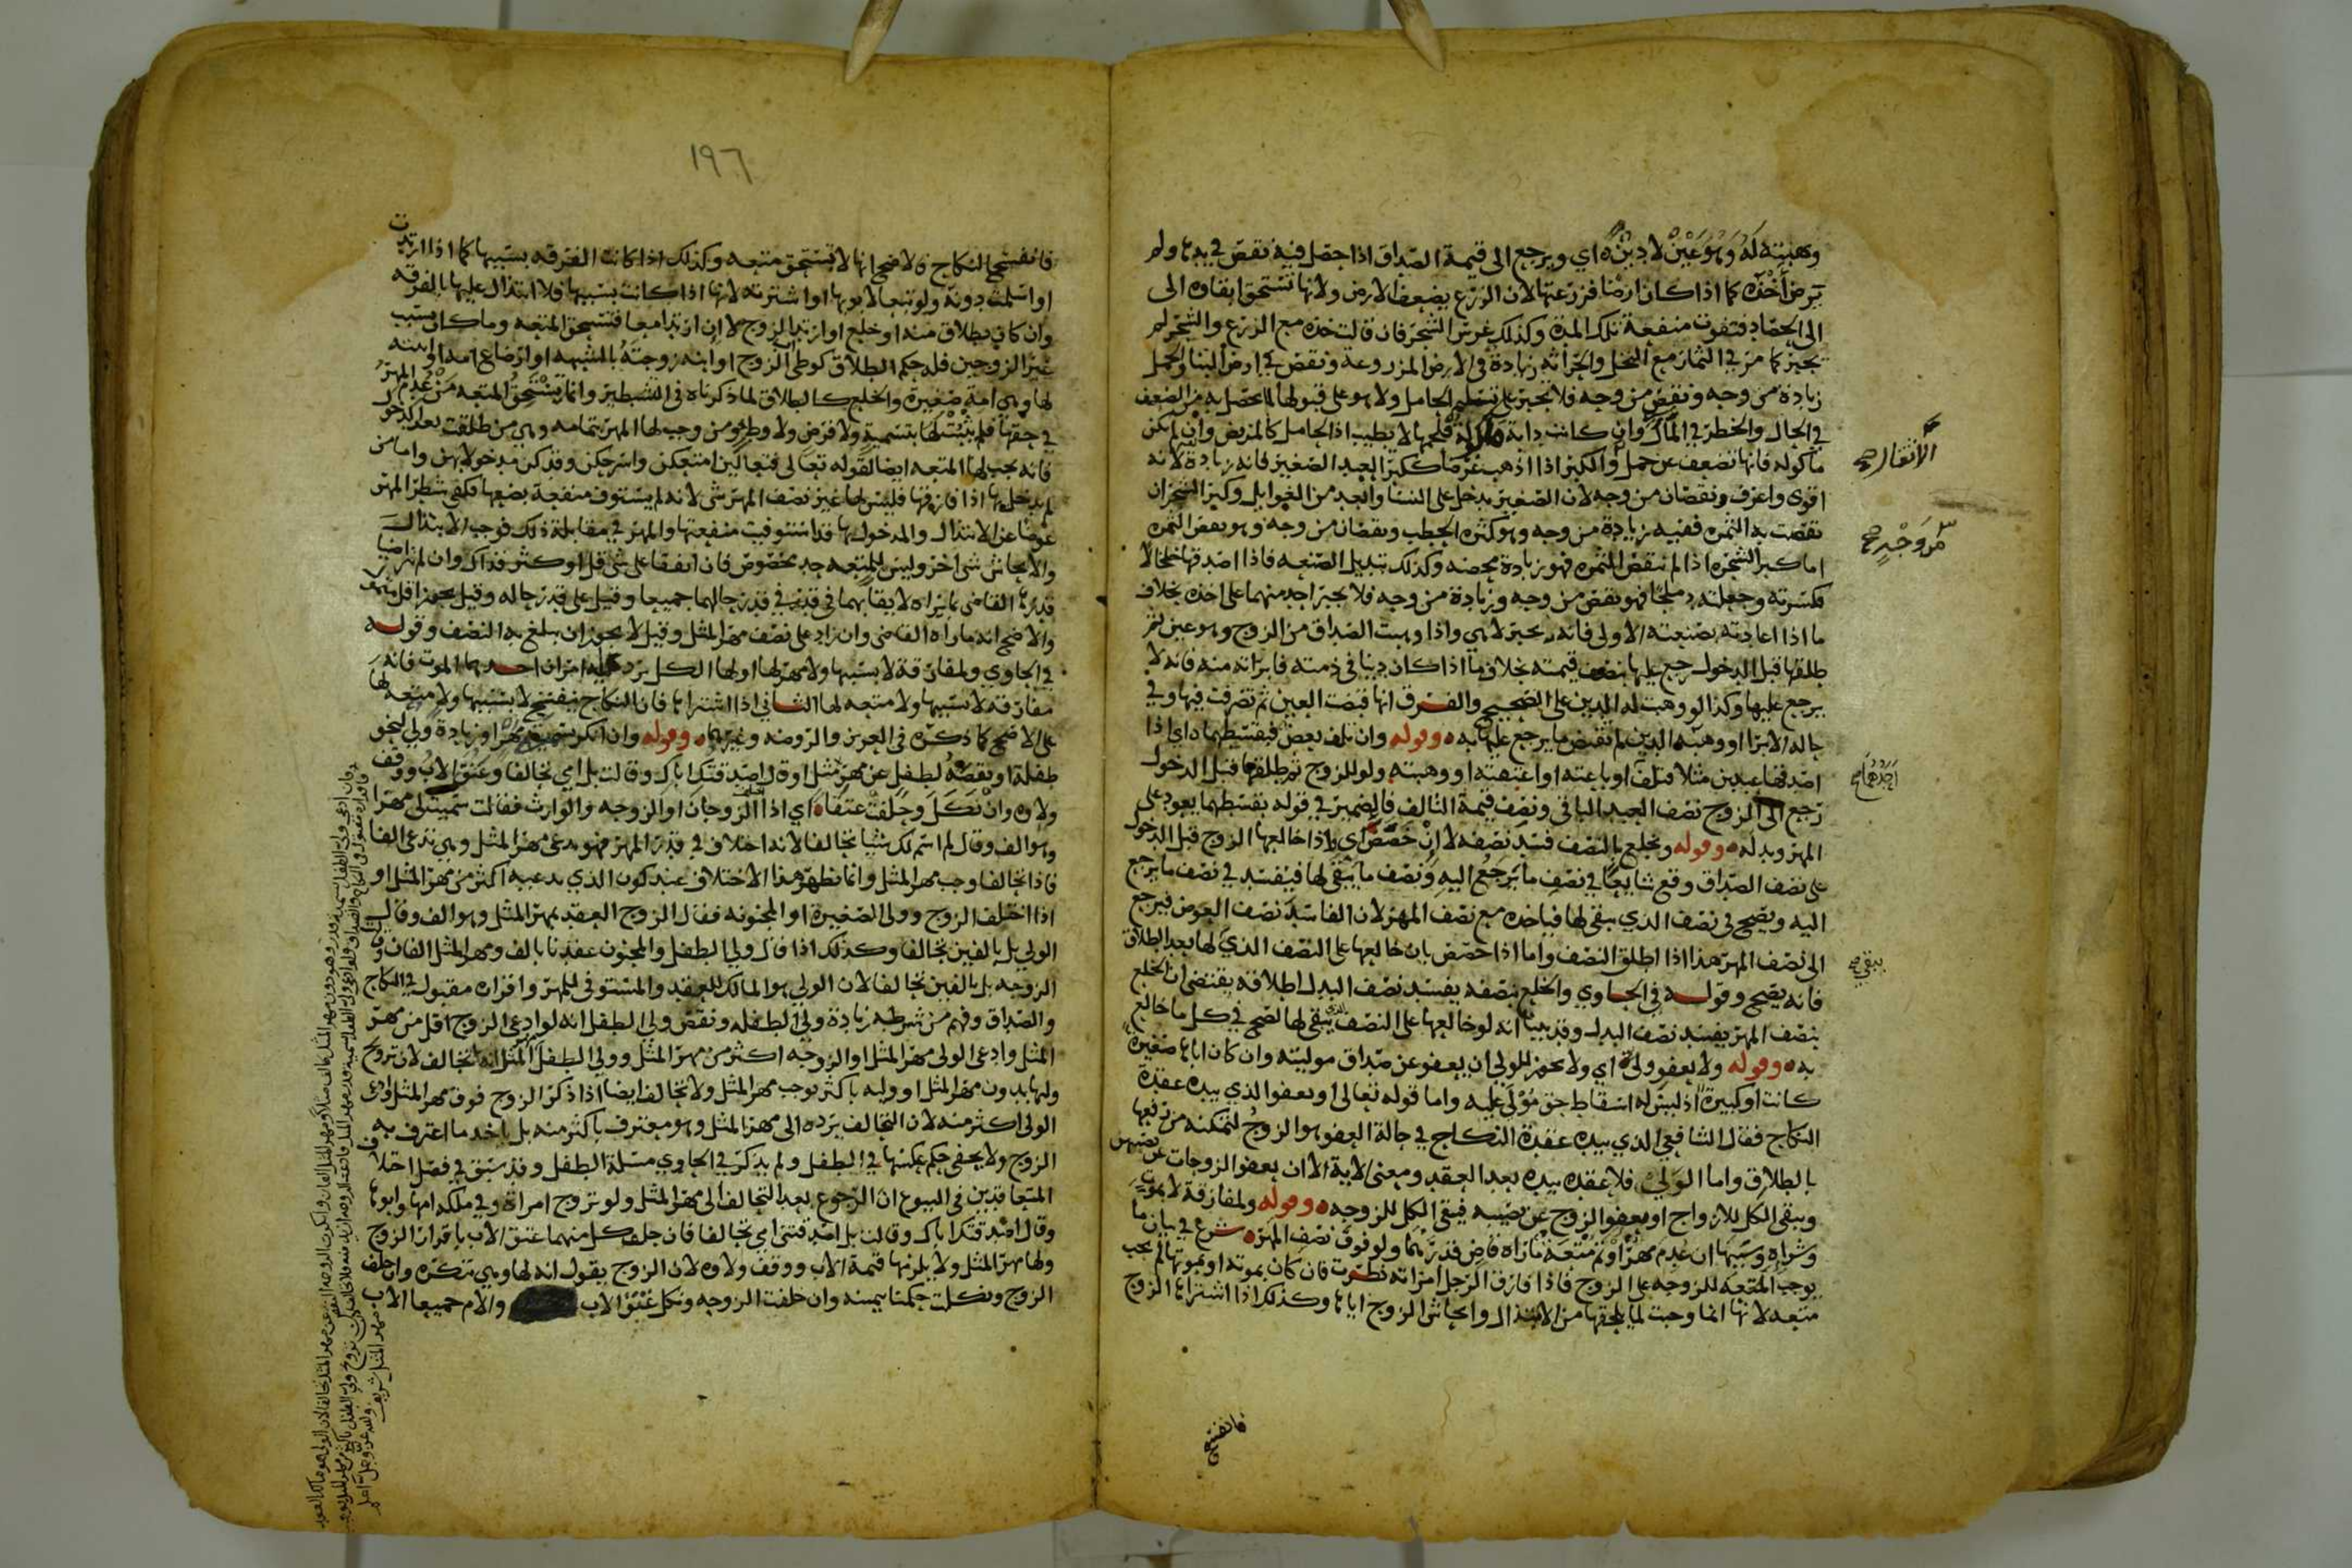 وهبته له وهو عين لا دين اي ويرجع الى قيمة الصداق اذا حصل فيه نقص في يدها ولم
يرض اخذه كما اذا كان ارضا فزرعتها لان الزرع يضعف الارض ولانها تستحق ابقاه الى
الى الحصاد فتفوت منفعة تلك المدة وكذلك غرس الشجر فان قالت خذه مع الزرع والشجر لم
يجبر كما مر في الثمار مع النخل والحراثه زيادة في الارض المزروعة ونقص في ارض البنا والحمل
زيادة من وجه ونقص من وجه فلا تجبر على تسليم الحامل ولا هو على قبولها لما حصل به من الضعف
في الحال والخطر في المآل وان كانت دابة ماكولة فلحمها لا يطيب اذ الحامل كالمريض وان لم تكن
ماكوله فانها تضعف عن حمل والكبر اذا اذهب غرضا ككبر العبد الصغير فانه زيادة لانه
اقوى واعرف ونقصان من وجه لان الصغير يدخل على النسا وابعد من الغوايل وكبر الشجر ان
نقصت به الثمره ففيه زيادة من وجه وهو كثرة الحطب ونقصان من وجه وهو بعض الثمره
اما كبر الشجره اذا لم تنقص الثمره فهو زيادة محضه وكذلك تبديل الصنعه فاذا اصدقها خلخالا
فكسرته وجعلته دملجا فهو نقص من وجه وزيادة من وجه فلا يجبر احد منهما على اخذه بخلاف
ما اذا اعادته بصنعته الاولى فانه يجبر لا هي واذا وهبت الصداق من الزوج وهو عين ثم
طلقها قبل الدخول رجع عليها بنصف قيمته بخلاف ما اذا كان دينا في ذمته فابراته منه فانه لا
يرجع عليها وكذا لو وهبت له الدين على الصحيح والفرق انها قبضت العين ثم تصرفت فيها وفي
حاله الابرا او وهبه الدين لم تقبض ما يرجع عليها به وقوله وان تلف بعض فبقسطهما اي اذا
اصدقها عبدين مثلا فتلف او باعته او اعتقته او وهبته ولو للزوج ثم طلقها قبل الدخول
رجع الى الزوج نصف العبد الباقي ونصف قيمة التالف فالضمير في قوله بقسطهما يعود على
المهر وبدله وقوله وتخلع بالنصف فسد نصفه لا ان خصص اي واذا خالعها الزوج قبل الدخول
على نصف الصداق وقع شايعا في نصف ما يرجع اليه ونصف ما يبقى لها فيفسد في نصف ما يرجع
اليه ويصح في نصف الذي يبقى لها فياخذه مع نصف المهر لان الفاسد نصف العوض فيرجع
الى نصف المهر هذا اذا اطلق النصف واما اذا خصص بان خالعها على النصف الذي لها بعد الطلاق
فانه يصح وقوله في الحاوي والخلع بنصفه يفسد نصف البدل اطلاقه يقتضي ان الخلع
بنصف المهر يفسد نصف البدل وقد بينا انه لو خالعها على النصف الذي يبقى لها لصح في كل ما خالع
به وقوله ولا يعفو ولي اي ولا يجوز للولي ان يعفو عن صداق موليته وان كان اباها صغيرة
كانت او كبيرة اذ ليس له اسقاط حق مولى عليه واما قوله تعالى او يعفو الذي بيده عقدة
النكاح فقال الشافعي الذي بيده عقدة النكاح في حالة العفو هو الزوج لتمكنه من رفعها
بالطلاق واما الولي فلا عقده بيده بعد العقد ومعنى الاية الا ان يعفو الزوجات عن نصيبهن
ويبقى الكل للازواج او يعفو الزوج عن نصيبه فيبقى الكل للزوجه وقوله ولمفارقة لا بموت
وشراه وسببها ان عدم مهر او تم متعة ما راه قاض قدرهما ولو فوق نصف المهر شرع في بيان ما
يوجب المتعه للزوجه على الزوج فاذا فارق الرجل امراته نظرت فان كان بموته او بموتها لم يجب
متعه لانها انما وجبت لما يلحقها من الابتذال والحاش الزوج اياها وكذلك اذا اشتراها الزوج
فانفسخ
الانتقال صح
من وجه صح
احدهما صح
يبقى صح
١٩٦
فانفسخ النكاح فالاصح انها لا تستحق متعه وكذلك اذا كانت الفرقه بسببها كما اذا ارتدت
او اسلمت دونه ولو تبعا لابويها او اشترته لانها اذا كانت بسببها فلا ابتذال عليها بالفرقه
وان كان بطلاق منه او خلع او ارتد الزوج لا ان ارتدا معا فتستحق المتعه وما كان بسبب
غير الزوجين فله حكم الطلاق كوطئ الزوج او ابنه زوجته بالشبهه او ارضاع امه او ابنته
لها وهي امة صغيرة والخلع كالطلاق لما ذكرناه في التشطير وانما تستحق المتعه من عدم المهر
في حقها فلم يثبت لها بتسمية ولا فرض ولا وطئ ومن وجب لها المهر بتمامه وهي من طلقت بعد الدخول
فانه يجب لها المتعه ايضا لقوله تعالى فتعالين امتعكن واسرحكن وقد كن مدخولا بهن واما من
لم يدخل بها اذا فارقها فليس لها غير نصف المهر شي لانه لم يستوف منفعة بضعها فكفى شطر المهر
عوضا عن الابتذال والمدخول بها قد استوفيت منفعتها والمهر في مقابلة ذلك فوجب للابتذال
والايحاش شي اخر وليس للمتعه حد مخصوص فان اتفقا على شي قل او كثر فذاك وان لم يتراضيا
قدرها القاضي بما يراه لايقا بهما في قدره في قدر حالهما جميعا وقيل على قدر حاله وقيل يجوز اقل متمول
والاصح انه ما راه القاضي وان زاد على نصف مهر المثل وقيل لا يجوز ان يبلغ به النصف وقوله
في الحاوي ولمفارقة لا بسببها ولا مهر لها او لها الكل يرد عليه امران احدهما الموت فانه لها
مفارقه لا بسببها ولا متعه لها الثاني اذا اشتراها فان النكاح ينفسخ لا بسببها ولا متعه
على الاصح كما ذكره في العزيز والروضه وغيرهما وقوله وان انكر تسمية مهر او زيادة ولي نحو
طفلة او نقصه لطفل عن مهر مثل او قال اصدقتك اباك وقالت بل امي تحالفا وعتق الاب ووقف
ولاوه وان نكل وحلفت عتقا اي اذا اختلف الزوجان او الزوجه والوارث فقالت سميت لي مهرا
وهو الف وقال لم اسم لك شيا تحالفا لانه اختلاف في قدر المهر فهو يدعي مهر المثل وهي تدعي الفا
فاذا تحالفا وجب مهر المثل وانما يظهر هذا الاختلاف عند كون الذي يدعيه اكثر من مهر المثل او
اذا اختلف الزوج وولي الصغيرة او المجنونه فقال الزوج العقد بمهر المثل وهو الف وقال
الولي بل بالفين تحالفا وكذلك اذا قال ولي الطفل والمجنون عقدنا بالف ومهر المثل الفان وقالت
الزوجه بل بالفين تحالفا لان الولي هو المالك للعقد والمستوفي للمهر واقراره مقبول في النكاح
والصداق وفهم من شرطه زيادة ولي الطفله ونقص ولي الطفل انه لو ادعى الزوج اقل من مهر
المثل وادعى الولي مهر المثل او الزوجه اكثر من مهر المثل وولي الطفل المثل انه لا تحالف لان تزويج
ولها بدون مهر المثل او وليه باكثر يوجب مهر المثل ولا تحالف ايضا اذا ذكر الزوج فوق مهر المثل وادعى
الولي اكثر منه لان التحالف يرده الى مهر المثل وهو معترف باكثر منه بل ياخذ ما اعترف به
الزوج ولا يخفى حكم عكسها في الطفل ولم يذكر في الحاوي مسئلة الطفل وقد سبق في فصل اختلاف
المتعاقدين في البيوع ان الرجوع بعد التحالف الى مهر المثل ولو تزوج امراة وفي ملكه امها وابوها
وقال اصدقتك اباك وقالت بل اصدقتني امي تحالفا فان حلف كل منهما عتق الاب باقرار الزوج
ولها مهر المثل ولا يلزمها قيمة الاب ووقف ولاوه لان الزوج يقول انه لها وهي تنكره وان حلف
الزوج ونكلت حكمنا بيمينه وان حلفت الزوجه ونكل عتق الاب والام جميعا الاب